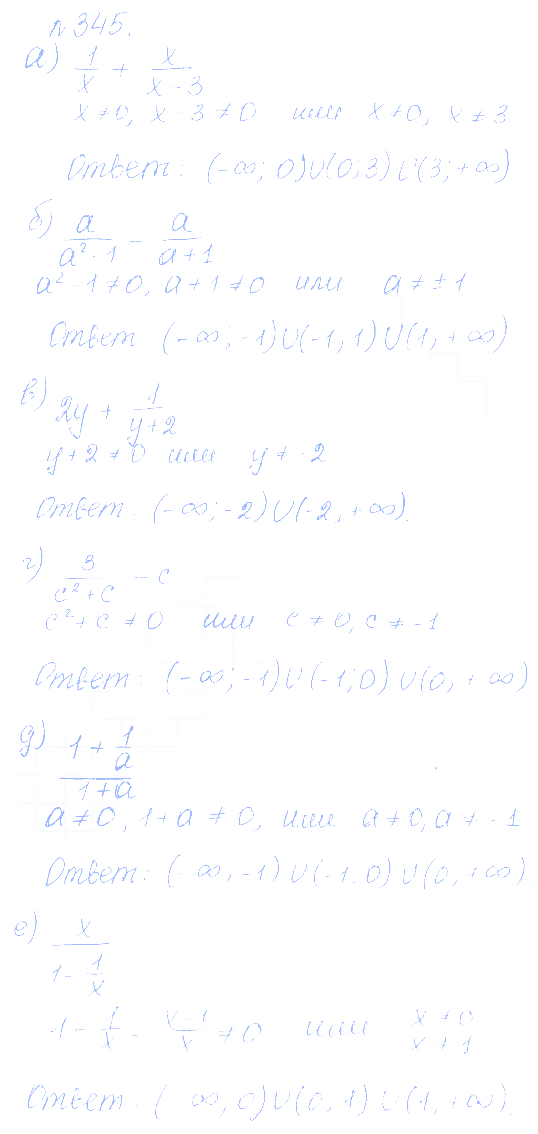 №345.
а) 1/x + x/(x - 3)
x ≠ 0, x - 3 ≠ 0 или x ≠ 0, x ≠ 3
Ответ: (-∞; 0)∪(0;3)∪(3;+∞)
б) a/(a² - 1) - a/(a + 1)
a² - 1 ≠ 0, a + 1 ≠ 0 или a ≠ ±1
Ответ (-∞; -1)∪(-1, 1)∪(1, +∞)
в) 2y + 1/(y + 2)
y + 2 ≠ 0 или y ≠ -2
Ответ: (-∞; -2)∪(-2; +∞).
г) 3/(c² + c) - c
c² + c ≠ 0 или c ≠ 0, c ≠ -1
Ответ: (-∞; -1)∪(-1; 0)∪(0, +∞)
д) (1 + 1/a)/(1 + a)
a ≠ 0, 1 + a ≠ 0, или a ≠ 0, a ≠ -1
Ответ: (-∞, -1)∪(-1. 0)∪(0, +∞)
е) x/(1 - 1/x)
1 - 1/x = (x - 1)/x ≠ 0 или x ≠ 0
x ≠ 1
Ответ: (-∞, 0)∪(0, 1)∪(1, +∞).